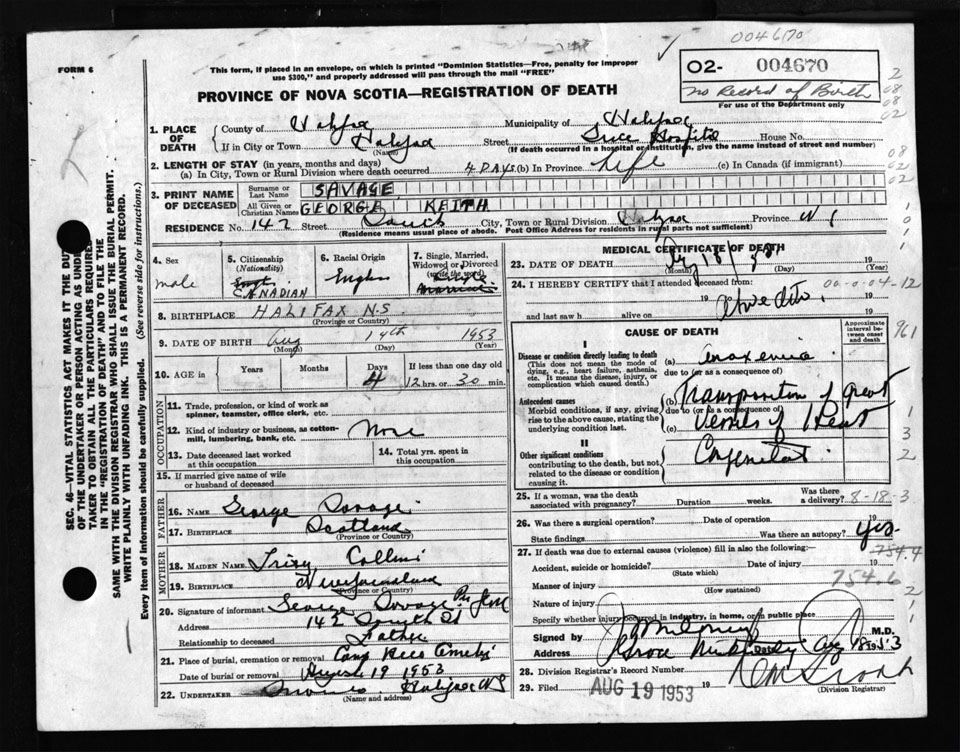 004670
FORM 6
This form, if placed in an envelope, on which is printed "Dominion Statistics—Free, penalty for improper
use $300," and properly addressed will pass through the mail "FREE"
O2- 004670
No Record of Birth
For use of the Department only
PROVINCE OF NOVA SCOTIA—REGISTRATION OF DEATH
1. PLACE OF DEATH
County of Halifax Municipality of Halifax
If in City or Town Halifax Street Grace Hospital House No.
(Name) (If death occurred in a hospital or institution, give the name instead of street and number)
2. LENGTH OF STAY (in years, months and days)
(a) In City, Town or Rural Division where death occurred 4 DAYS (b) In Province Life (c) In Canada (if immigrant)
3. PRINT NAME OF DECEASED
Surname or Last Name SAVAGE
All Given or Christian Names GEORGE KEITH
RESIDENCE No. 142 Street South City, Town or Rural Division Halifax Province N S
(Residence means usual place of abode. Post Office Address for residents in rural parts not sufficient)
4. Sex male
5. Citizenship (Nationality) CANADIAN
6. Racial Origin English
7. Single, Married, Widowed or Divorced (write the word) Single
8. BIRTHPLACE HALIFAX N.S.
(Province or Country)
9. DATE OF BIRTH Aug 14th 1953
(Month) (Day) (Year)
10. AGE in Years Months Days 4 If less than one day old 12 hrs. or 30 min.
OCCUPATION
11. Trade, profession, or kind of work as spinner, teamster, office clerk, etc.
12. Kind of industry or business, as cotton-mill, lumbering, bank, etc. None
13. Date deceased last worked at this occupation
14. Total yrs. spent in this occupation
15. If married give name of wife or husband of deceased
FATHER
16. NAME George Savage
17. BIRTHPLACE Scotland
(Province or Country)
MOTHER
18. MAIDEN NAME Collins
19. BIRTHPLACE Newfoundland
(Province or Country)
20. Signature of informant George Savage
Address 142 South St
Relationship to deceased Father
21. Place of burial, cremation or removal Camp Hill Cemetery
Date of burial or removal August 19 1953
22. UNDERTAKER Halifax N S
(Name and address)
MEDICAL CERTIFICATE OF DEATH
23. DATE OF DEATH Aug 18/53 19
(Month) (Day)
24. I HEREBY CERTIFY that I attended deceased from:
19
and last saw h alive on 19
00-0-04-12
CAUSE OF DEATH
Approximate interval between onset and death
I
Disease or condition directly leading to death
(This does not mean the mode of dying, e.g., heart failure, asthenia, etc. It means the disease, injury, or complication which caused death.)
(a) Anoxemia
due to (or as a consequence of)
Antecedent causes
Morbid conditions, if any, giving rise to the above cause, stating the underlying condition last.
(b) Transposition of great
due to (or as a consequence of)
(c) Vessels of Heart
II
Other significant conditions
contributing to the death, but not related to the disease or condition causing it.
Congenital
25. If a woman, was the death associated with pregnancy? Duration weeks. Was there a delivery? 8-18-3
26. Was there a surgical operation? Date of operation 19
State findings Was there an autopsy? Yes
27. If death was due to external causes (violence) fill in also the following:—
754.4
Accident, suicide or homicide? Date of injury 19
(State which)
Manner of injury 754.6
(How sustained)
Nature of injury
Specify whether injury occurred in industry, in home, or in public place
Signed by M.D.
Address Grace Aug 18 1953
28. Division Registrar's Record Number
29. Filed AUG 19 1953 19
(Division Registrar)
SEC. 46—VITAL STATISTICS ACT MAKES IT THE DUTY
OF THE UNDERTAKER OR PERSON ACTING AS UNDER-
TAKER TO OBTAIN ALL THE PARTICULARS REQUIRED
IN THE "REGISTRATION OF DEATH" AND TO FILE THE
SAME WITH THE DIVISION REGISTRAR WHO SHALL ISSUE THE BURIAL PERMIT.
WRITE PLAINLY WITH UNFADING INK. THIS IS A PERMANENT RECORD.
Every item of information should be carefully supplied. (See reverse side for instructions.)